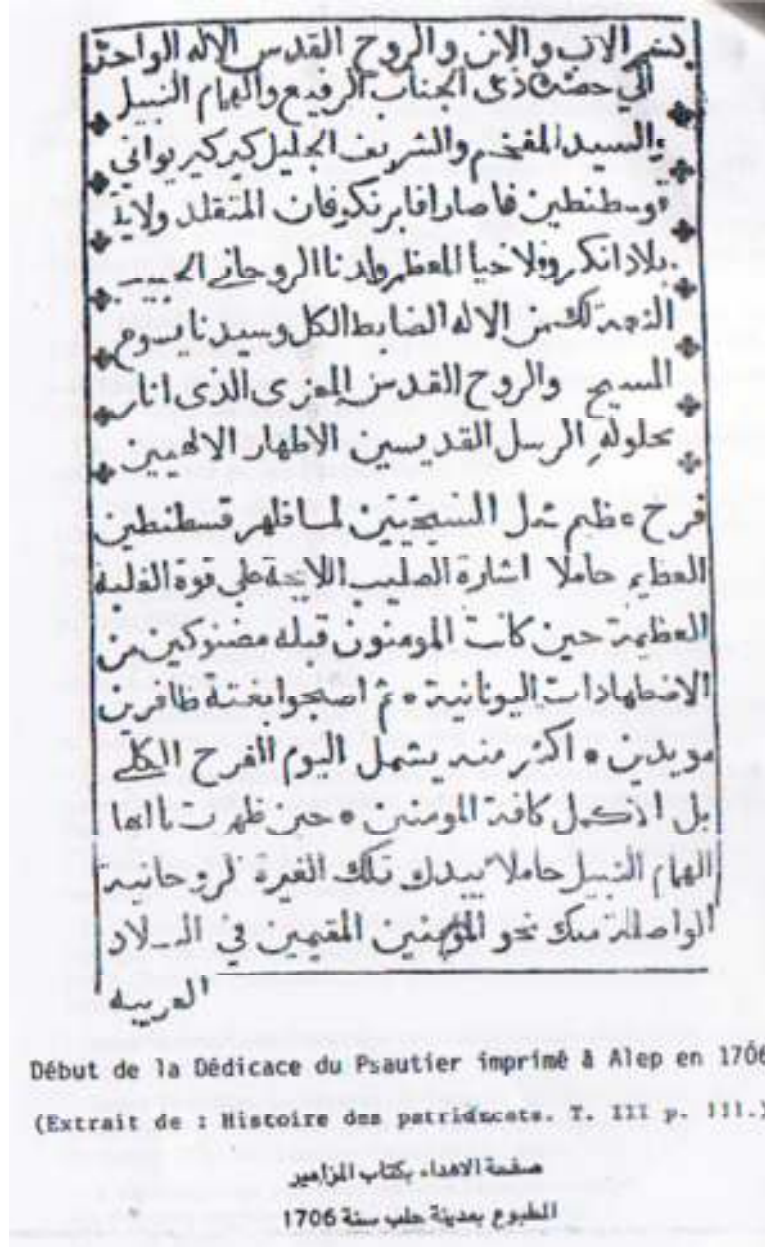 بسم الاب والابن والروح القدس الاله الواحد
الي حضرة ذى الجناب الرفيع والهمام النبيل
السيد المفخم والشريف الجليل كير كير يواني
قوسطنطين فاصارابا برنكوفان المتقلد ولاية
بلاد انكروفلاخيا المعظم ولدنا الروحاني الحبيب
النعمة لك من الاله الضابط الكل وسيدنا يسوع
المسيح والروح القدس المعزى الذى انار
بحلوله الرسل القديسين الاطهار الالهيين
فرح عظيم شمل المسيحيين لما ظهر قسطنطين
العظيم حاملا اشارة الصليب اللايحة علي قوة الغلبة
العظيمة حين كانت المومنون قبله مضنوكين من
الاضطهادات اليونانية • ثم اصبحوا بغتة ظافرين
مويدين • اكثر منه يشمل اليوم الفرح الكلي
بل الاكمل كافة المومنين • حين ظهرت ياايها
الهمام النبيل حاملا بيدك تلك الغيرة الروحانية
الواصلة منك نحو المؤمنين المقيمين في البلاد
العربيه
Début de la Dédicace du Psautier imprimé à Alep en 1706
(Extrait de : Histoire des patriarcats. T. III p. 111.)
صفحة الاهداء بكتاب المزامير
المطبوع بمدينة حلب سنة 1706